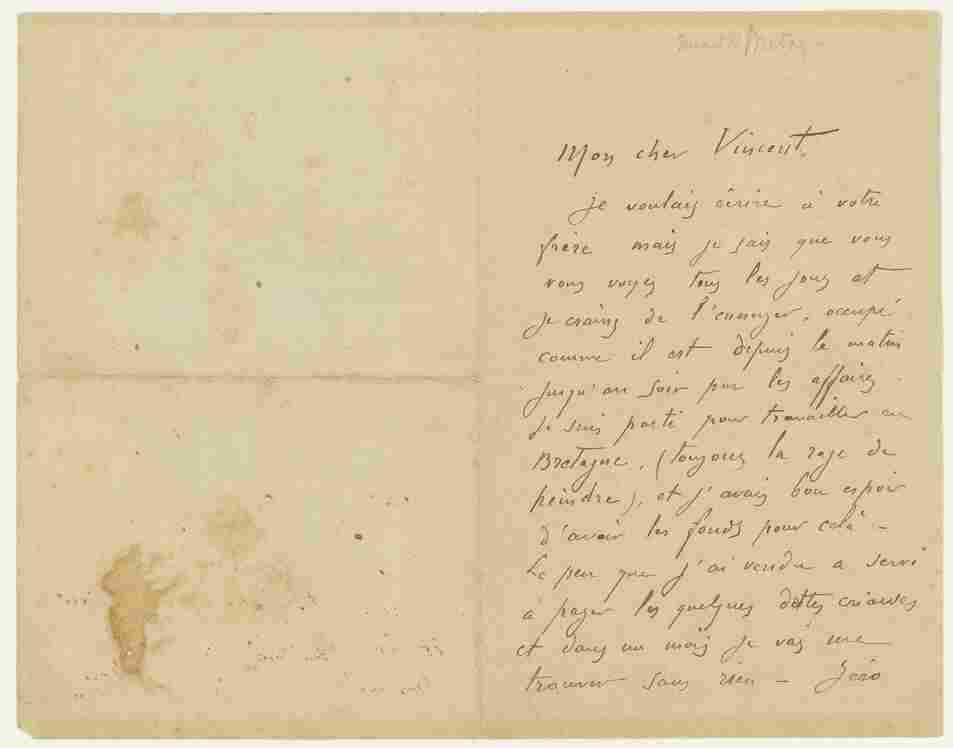 Mon cher Vincent.
je voulais écrire à votre
frère mais je sais que vous
vous voyez tous les jours et
je crains de l'ennuyer, occupé
comme il est depuis le matin
jusqu'au soir par les affaires.
Je suis parti pour travailler en
Bretagne, (toujours la rage de
peindre), et j'avais bon espoir
d'avoir les fonds pour celà. –
Le peu que j'ai vendu a servi
à payer les quelques dettes criardes
et dans un mois je vais me
trouver sans rien – Zéro